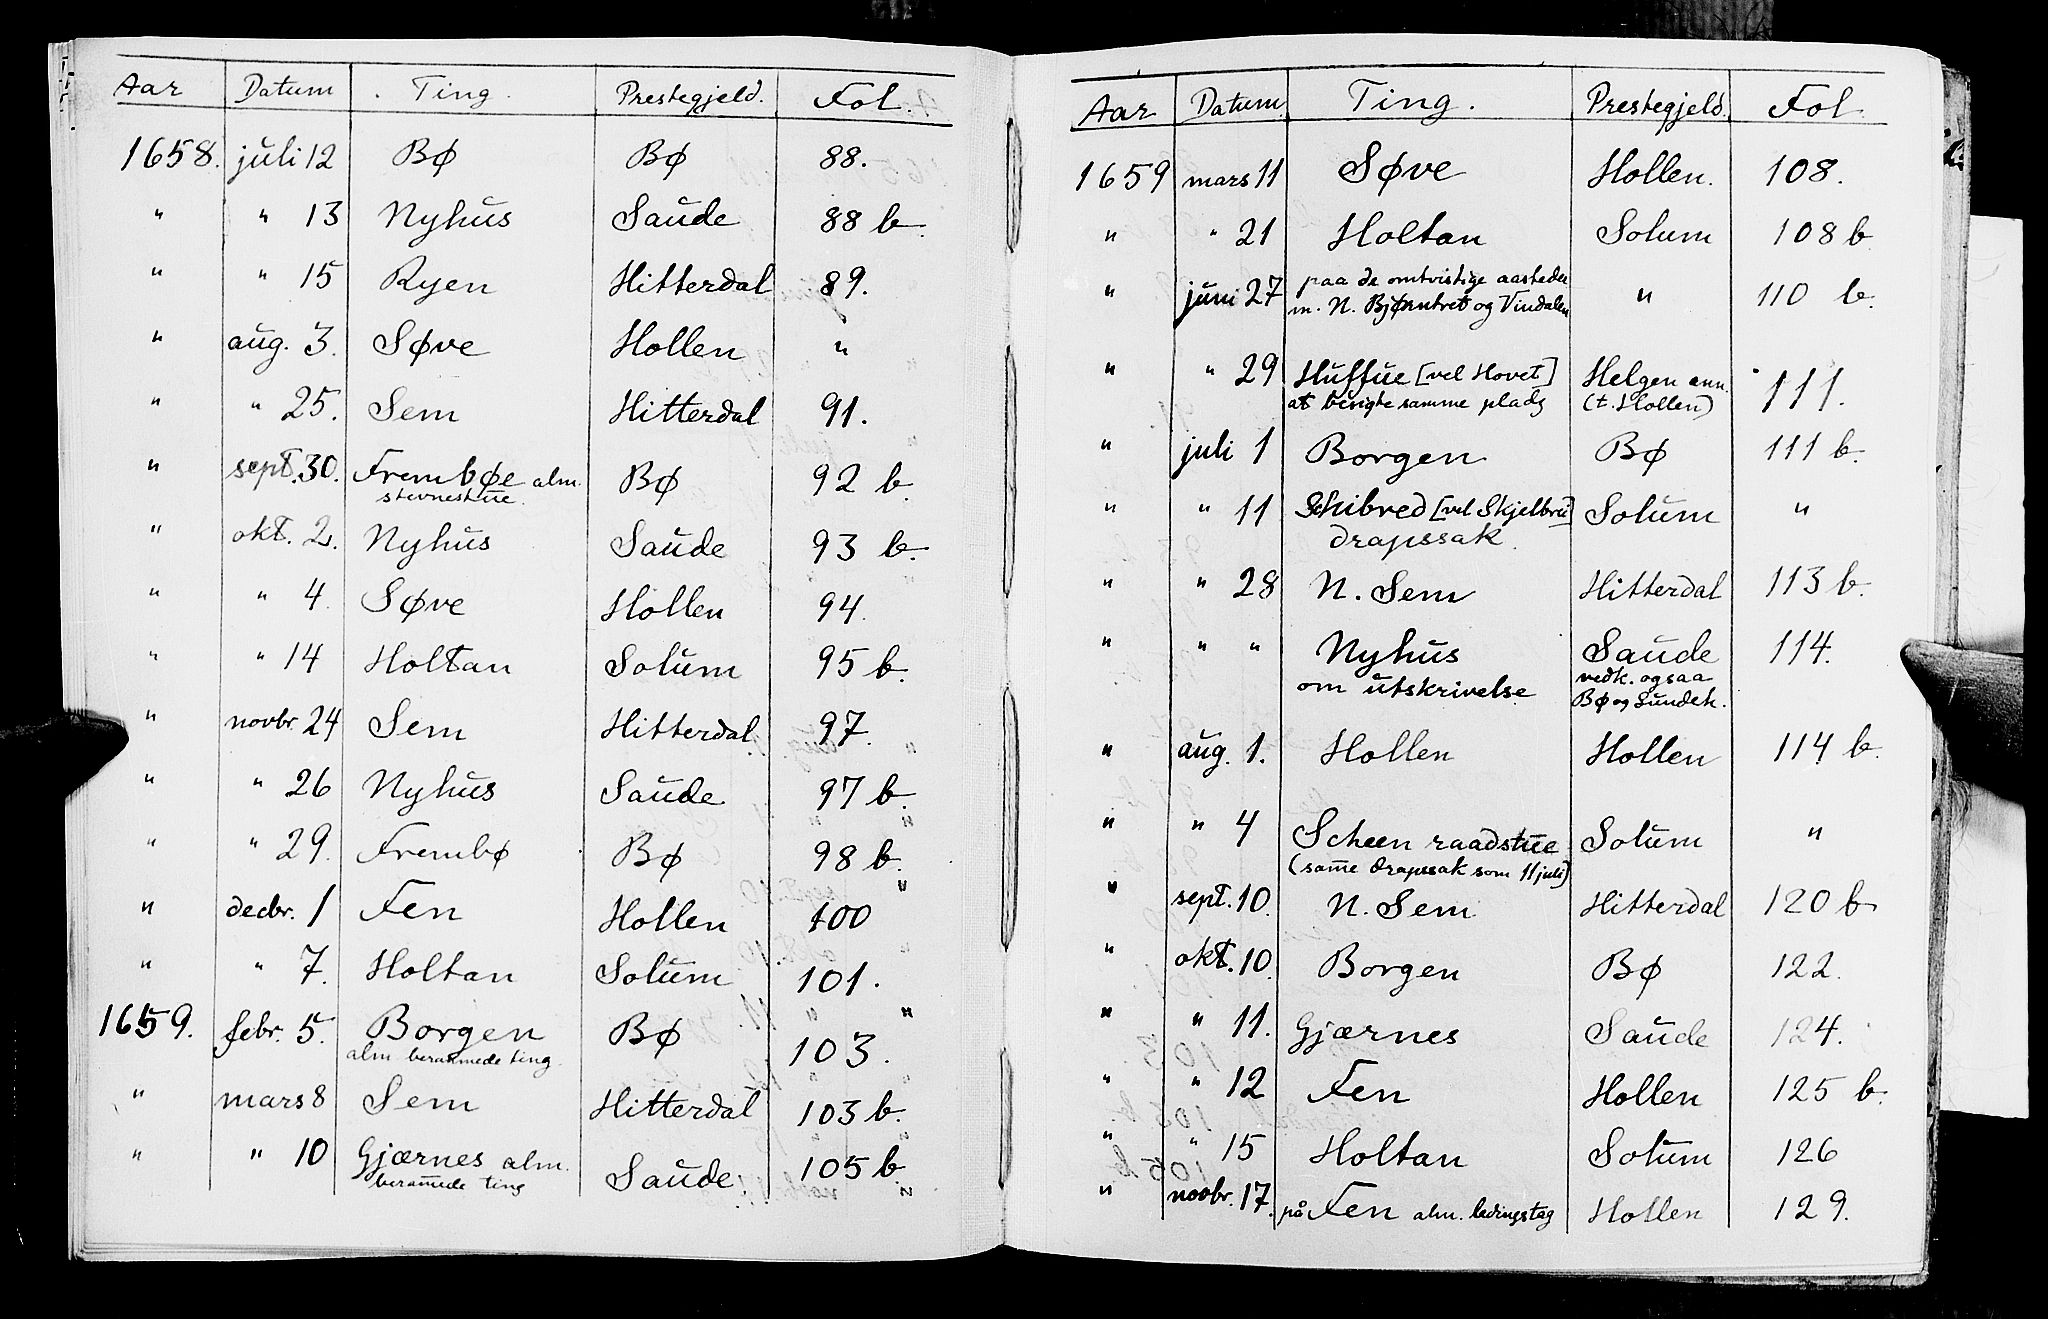 Aar Datum Ting. Prestegjeld. Fol.
1658. juli 12 Bø Bø 88.
" " 13 Nyhus Saude 88 b.
" " 15 Ryen Hitterdal 89.
" aug. 3. Søve Hollen "
" " 25. Sem Hitterdal 91.
" sept. 30. Frembøe alm. Bø 92 b.
stevnestue.
" okt. 2. Nyhus Saude 93 b.
" " 4. Søve Hollen 94.
" " 14 Holtan Solum 95 b.
" novbr. 24 Sem Hitterdal 97.
" " 26 Nyhus Saude 97 b.
" " 29. Frembø Bø 98 b.
" decbr. 1 Fen Hollen 100
" " 7. Holtan Solum 101.
1659. febr. 5. Borgen Bø 103.
alm berammede ting.
" mars 8 Sem Hitterdal 103 b.
" " 10 Gjærnes alm. Saude. 105 b.
beram̅ede ting
Aar Datum. Ting. Prestegjeld. Fol.
1659 mars 11 Søve Hollen. 108.
" " 21 Holtan Solum 108 b.
" juni 27 paa de omtvistige aasteder " 110 b.
m. N. Bjønntvet og Vindalen
" " 29 Huffue [vel Hovet] Helgen ann. 111.
at besigte samme plads (t. Hollen)
" juli 1 Borgen Bø 111 b.
" " 11 Schibred [vel Skjelbrei] Solum "
drapssak.
" " 28 N. Sem Hitterdal 113 b.
" " " Nyhus Saude 114.
om utskrivelse vedk. ogsaa
Bø og Lundeh.
" aug. 1. Hollen Hollen 114 b.
" " 4 Scheen raadstue Solum "
(sam̅e drapssak som 11 juli)
" sept. 10. N. Sem Hitterdal 120 b
" okt. 10. Borgen Bø 122.
" " 11. Gjærnes Saude 124.
" " 12 Fen Hollen 125 b.
" " 15 Holtan Solum 126
" novbr. 17. på Fen alm. ledingstag Hollen 129.